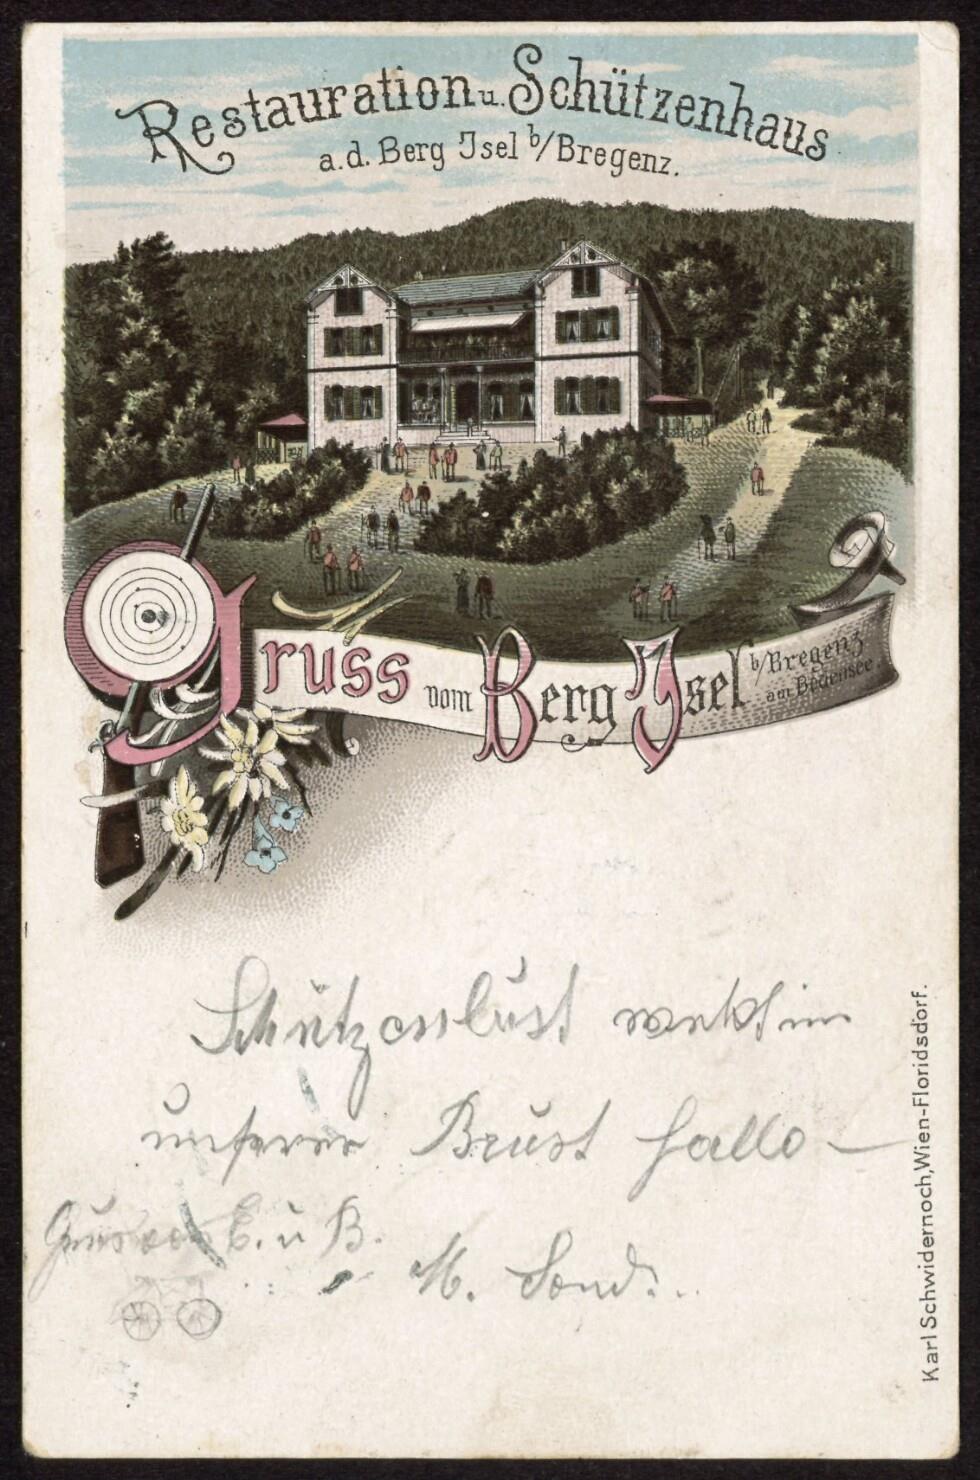 Restauration u. Schützenhaus
a. d. Berg Isel b/Bregenz.
Gruss vom Berg Isel b/Bregenz
am Bodensee
Schützenlust wekt in
unserer Brust Hallo –
E. u B.
M.
Karl Schwidernoch, Wien-Floridsdorf.